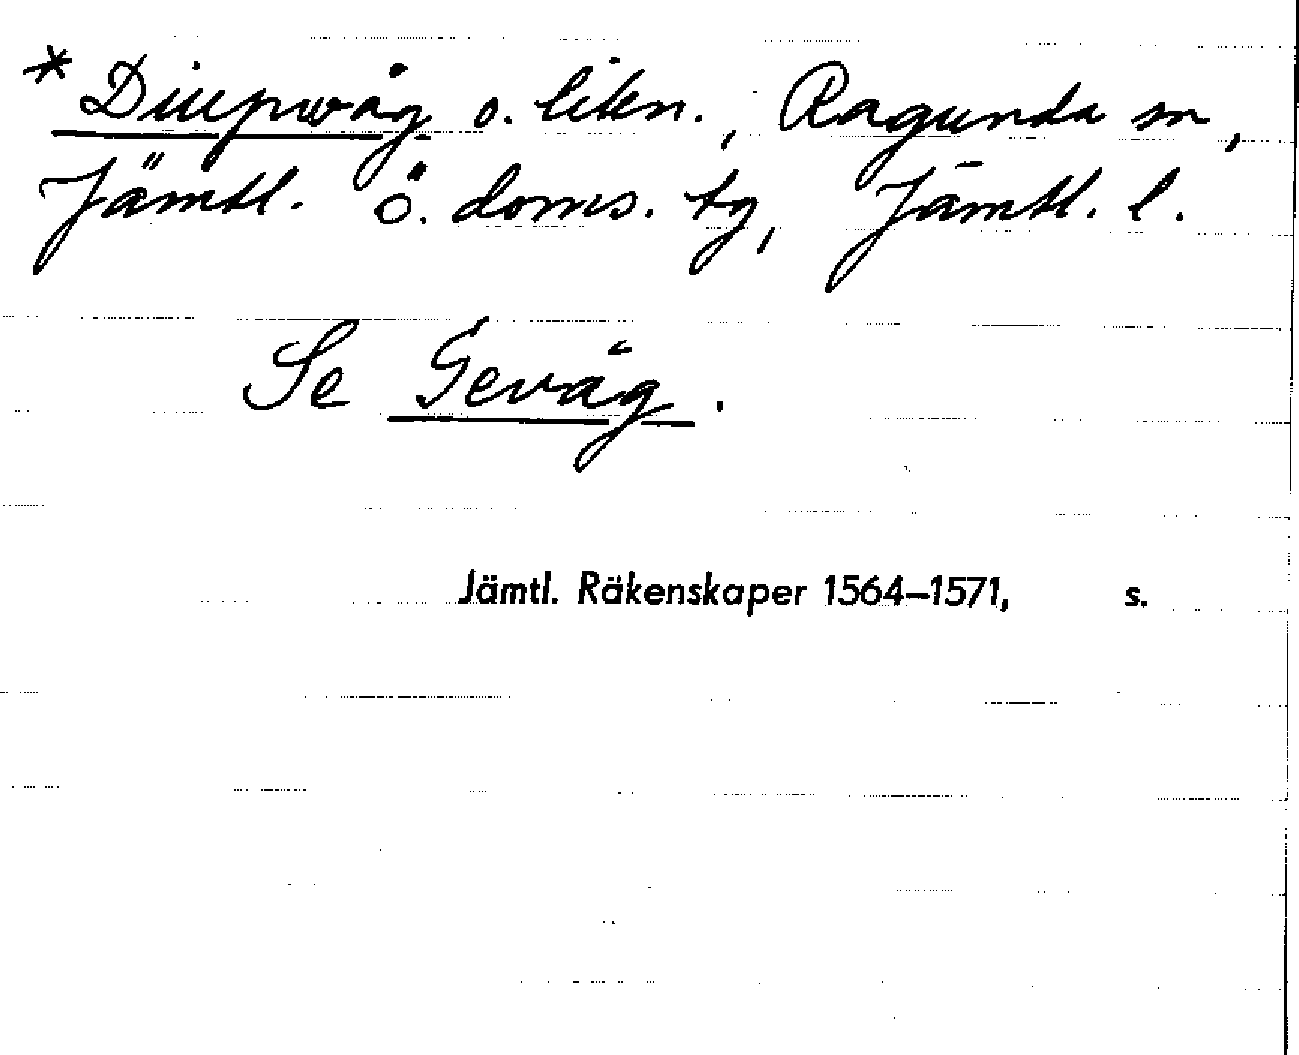 * Diupwåg o. likn., Ragunda sn,
Jämtl. ö. doms. tg, Jämtl. l.
Se Gevåg.
Jämtl. Räkenskaper 1564–1571, s.